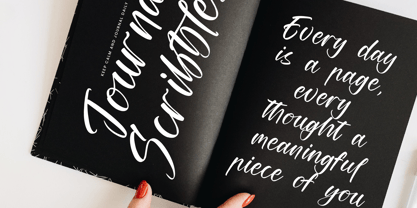 KEEP CALM AND JOURNAL DAILY
Scribble
Every day
is a page,
every
thought a
meaningful
piece of you